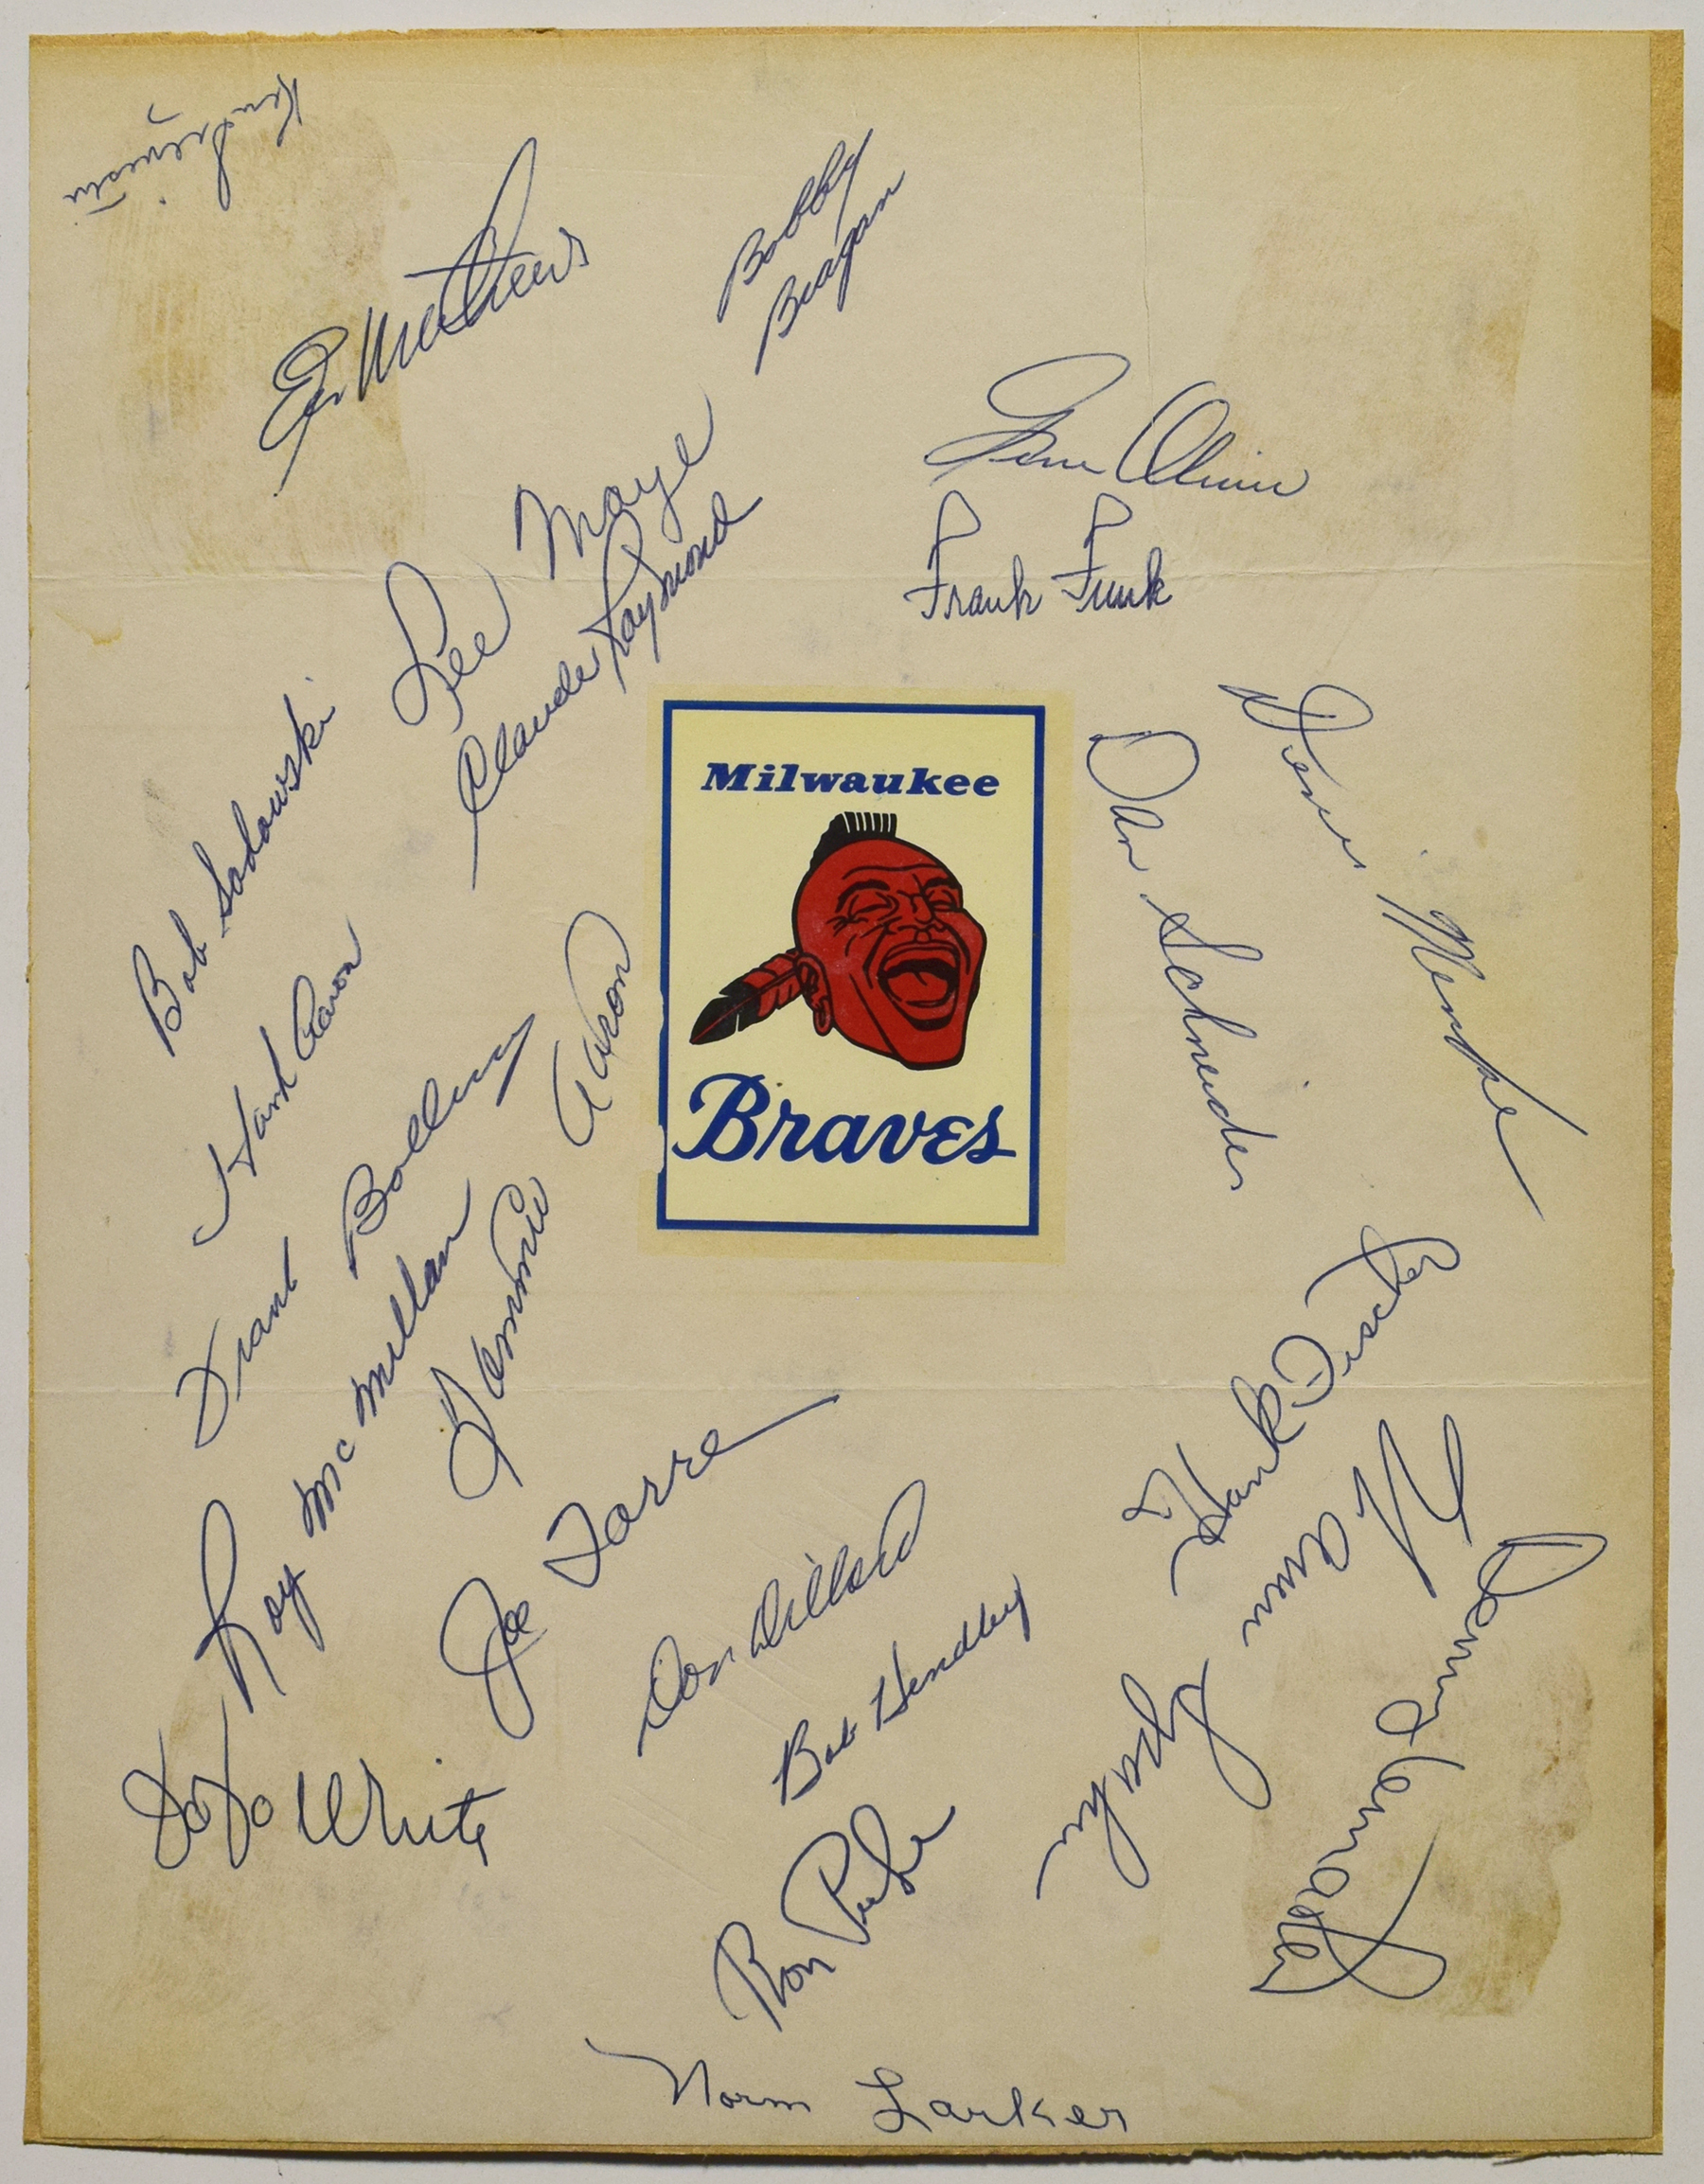 Ed Mathews
Bobby
Bragan
Gene Oliver
Lee Maye
Claude Raymond
Frank Funk
Bob Sadowski
Denis Menke
Dan Schneider
Milwaukee
Braves
Hank Aaron
Frank Bolling
Tommie Aaron
Roy McMillan
Joe Torre
Hank Fischer
Warren Spahn
Denny Lemaster
Don Dillard
Bob Hendley
JoJo White
Ron Piche
Norm Larker